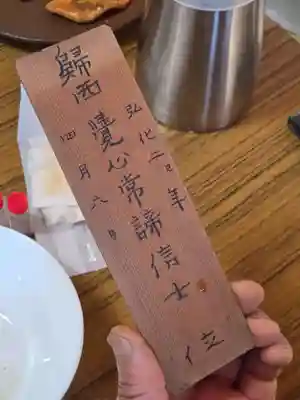 弘化二巳年
歸西覺心常諦信士位
四月六日